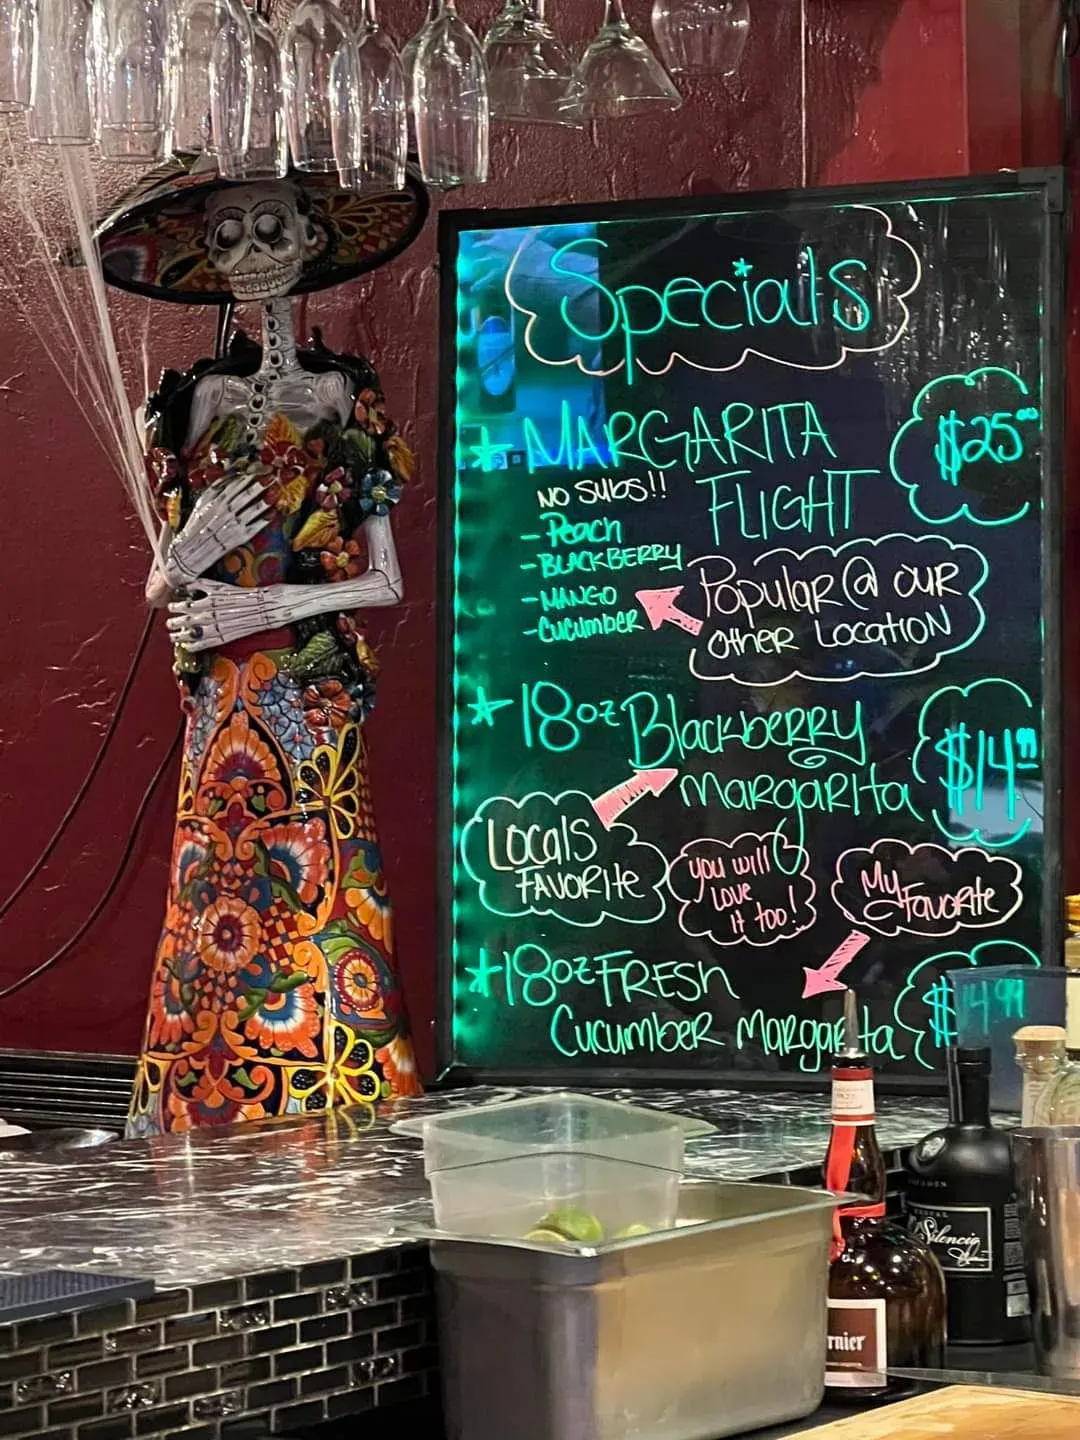 Specials
* MARGARITA
FLIGHT
$25.00
NO SUBS!!
- Peach
- BLACKBERRY
- MANGO
- CUCUMBER
POPULAR @ OUR
OTHER LOCATION
* 18oz Blackberry
MARGARITA
$14.99
LOCALS
FAVORITE
YOU WILL
LOVE
IT TOO!
MY
FAVORITE
* 18oz FRESH
CUCUMBER MARGARITA
$14.99
Silencio
rnier